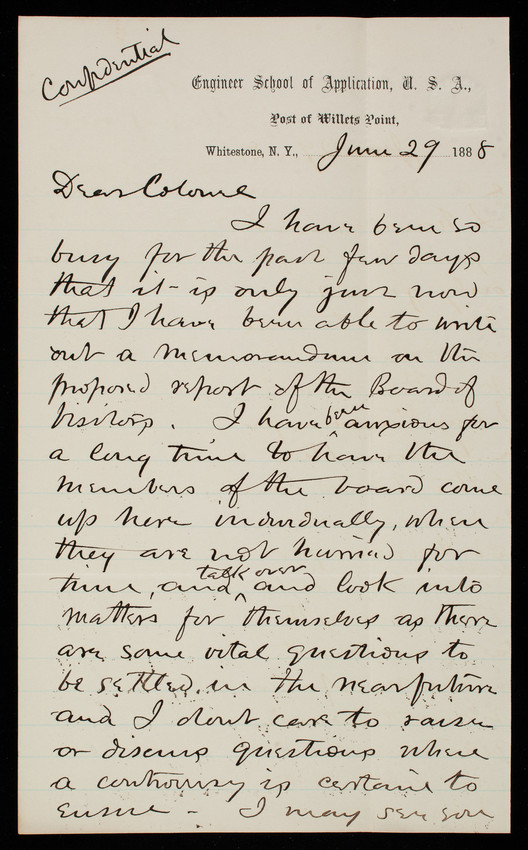 Confidential
Engineer School of Application, U. S. A.,
Post of Willets Point,
Whitestone, N. Y., June 29 1888
Dear Colonel
I have been so
busy for the past few days
that it is only just now
that I have been able to write
out a memorandum on the
proposed report of the Board of
Visitors. I have been anxious for
a long time to have the
members of the board come
up here individually, when
they are not hurried for
time, and talk over and look into
matters for themselves as there
are some vital questions to
be settled in the near future
and I dont care to raise
or discuss questions where
a controversy is certain to
ensue - I may see you